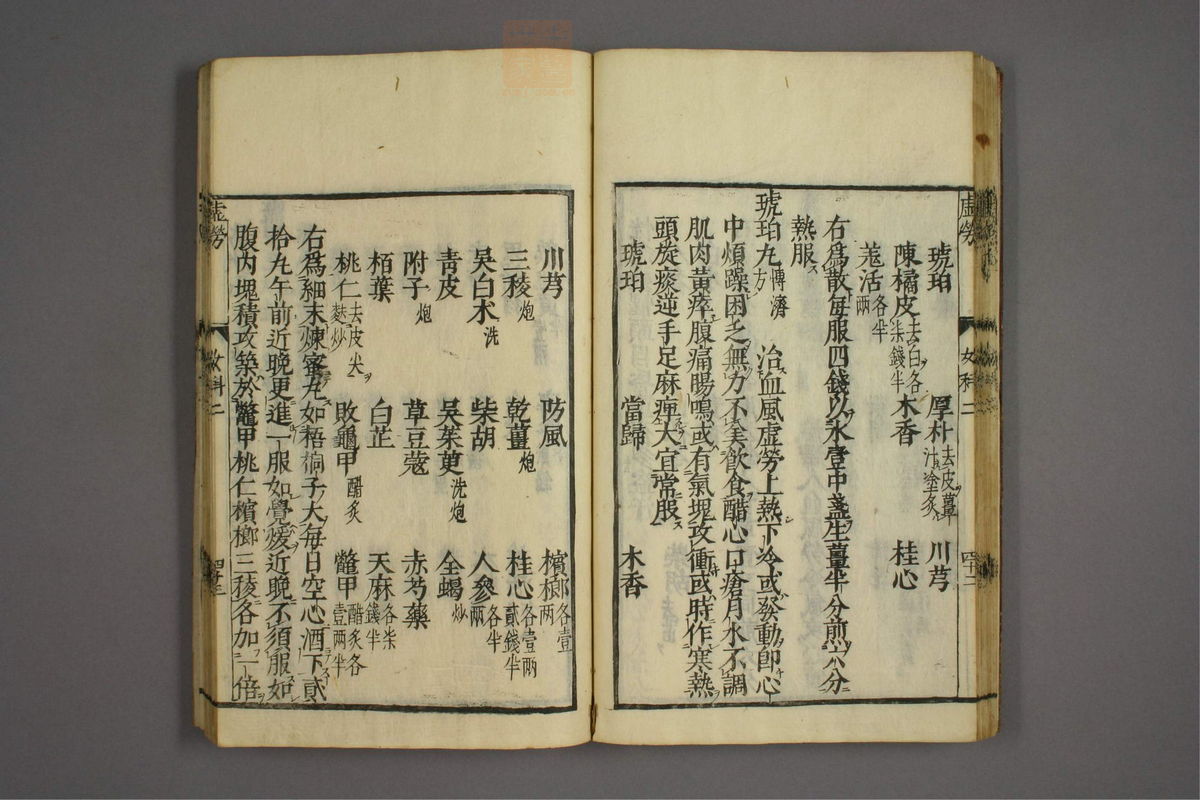 虛勞　女科二　四十二
琥珀　厚朴去皮薑汁塗炙　川芎
陳橘皮去白各柒錢半　木香　桂心
羗活各半兩
右爲散每服四錢以水壹中盞生薑半分煎六分
熱服
琥珀丸博濟方　治血風虛勞上熱下冷或發動卽心
中煩躁困乏無力不美飲食醋心口瘡月水不調
肌肉黃瘁腹痛腸鳴或有氣塊攻衝或時作寒熱
頭旋痰逆手足麻痺大宜常服
琥珀　當歸　木香
川芎　防風　檳榔各壹兩
三稜炮　乾薑炮　桂心各壹兩貳錢半
吴白术洗　柴胡　人參各半兩
靑皮　吴茱萸洗炮　全蝎炒
附子炮　草豆蔻　赤芍藥
栢葉　白芷　天麻各柒錢半
桃仁去皮尖麩炒　敗龜甲醋炙　鼈甲醋炙各壹兩半
右爲細末煉蜜丸如梧桐子大每日空心酒下貳
拾丸午前近晚更進一服如覺煖近晚不須服如
腹內塊積攻築於鼈甲桃仁檳榔三稜各加一倍
虛勞　女科二